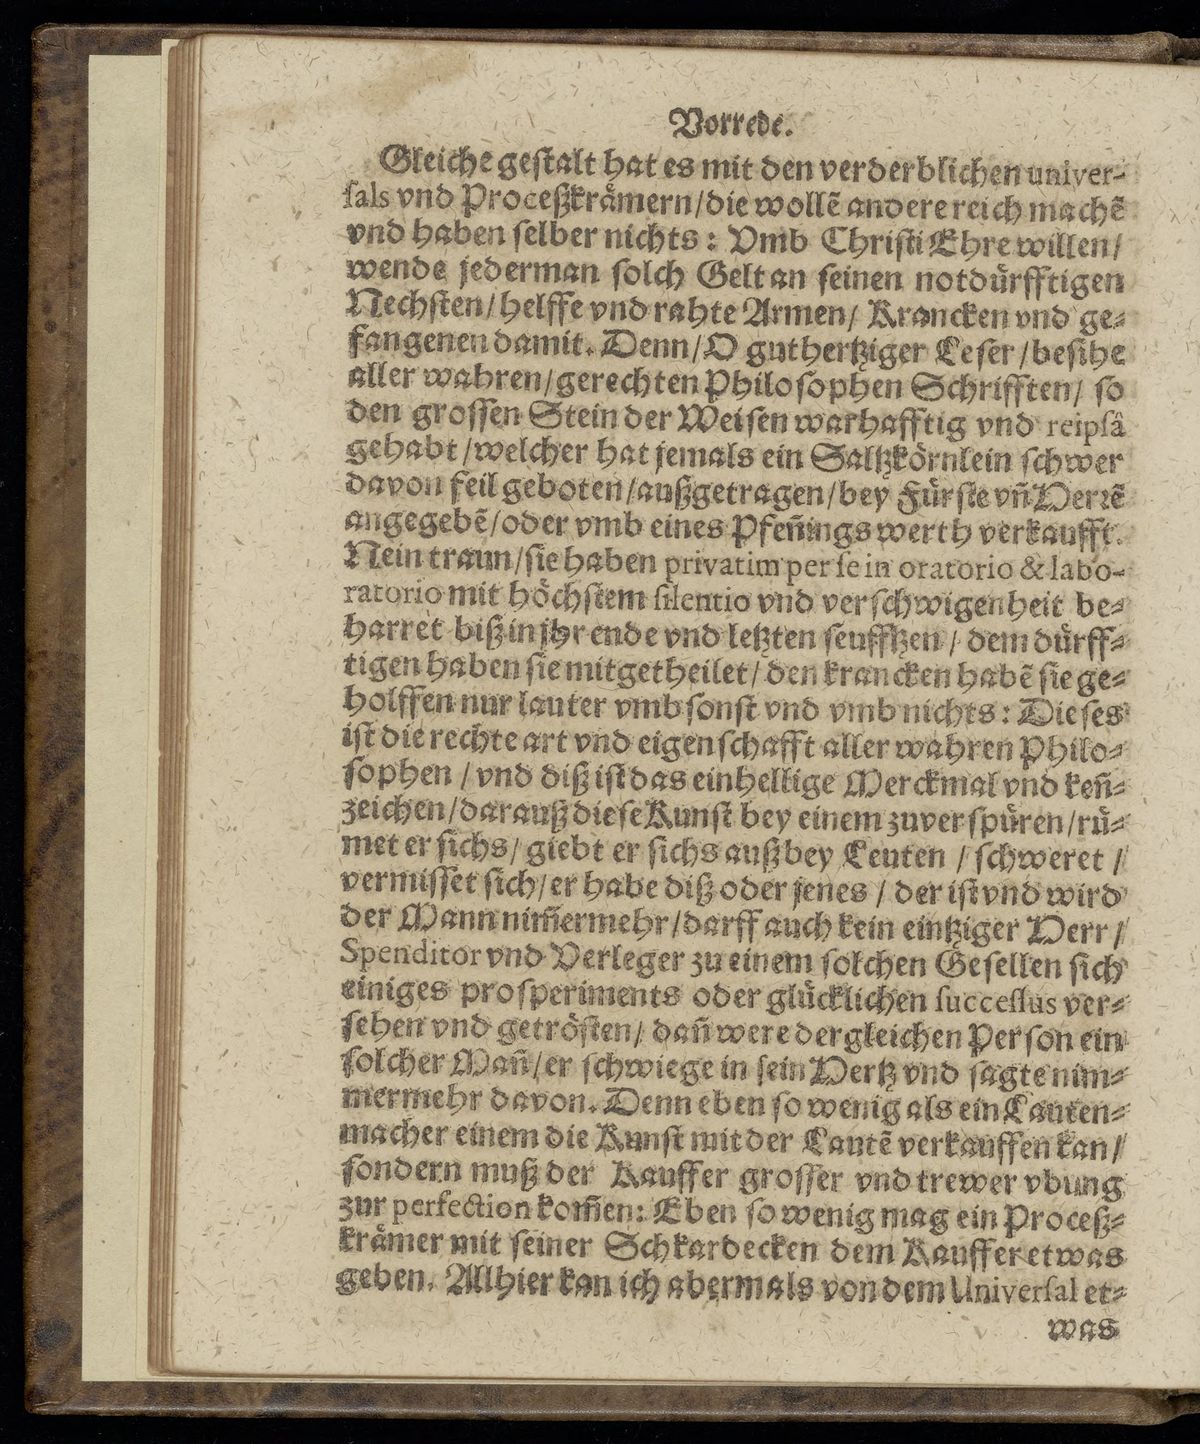 Vorrede.
Gleiche gestalt hat es mit den verderblichen univer-
sals vnd Proceßkrämern/die wollẽ andere reich machẽ
vnd haben selber nichts: Vmb Christi Ehre willen/
wende jederman solch Gelt an seinen notdürfftigen
Nechsten/helffe vnd rahte Armen/ Krancken vnd ge-
fangenen damit. Denn/O guthertziger Leser/besihe
aller wahren/gerechten Philosophen Schrifften/ so
den grossen Stein der Weisen warhafftig vnd reipsâ
gehabt/welcher hat jemals ein Saltzkörnlein schwer
davon feil geboten/außgetragen/bey Fürste vñ Herrẽ
angegebẽ/oder vmb eines Pfeñings werth verkaufft.
Nein traun/sie haben privatim per se in oratorio & labo-
ratorio mit höchstem silentio vnd verschwigenheit be-
harret biß in jhr ende vnd letzten seufftzen/ dem dürff-
tigen haben sie mitgetheilet/den krancken habẽ sie ge-
holffen nur lauter vmb sonst vnd vmb nichts: Dieses
ist die rechte art vnd eigenschafft aller wahren Philo-
sophen/vnd diß ist das einhellige Merckmal vnd keñ-
zeichen/darauß diese Kunst bey einem zuverspüren/rü-
met er sichs/ giebt er sichs auß bey Leuten / schweret /
vermisset sich/er habe diß oder jenes / der ist vnd wird
der Mann nim̃ermehr/darff auch kein eintziger Herr/
Spenditor vnd Verleger zu einem solchen Gesellen sich
einiges prosperiments oder glücklichen successus ver-
sehen vnd getrösten/ dañ were dergleichen Person ein
solcher Mañ/er schwiege in sein Hertz vnd sagte nim-
mermehr davon. Denn eben so wenig als ein Lauten-
macher einem die Kunst mit der Lautẽ verkauffen kan/
sondern muß der Kauffer grosser vnd trewer vbung
zur perfection kom̃en: Eben so wenig mag ein Proceß-
krämer mit seiner Schkardecken dem Kauffer etwas
geben. Allhier kan ich abermals von dem Universal et-
was